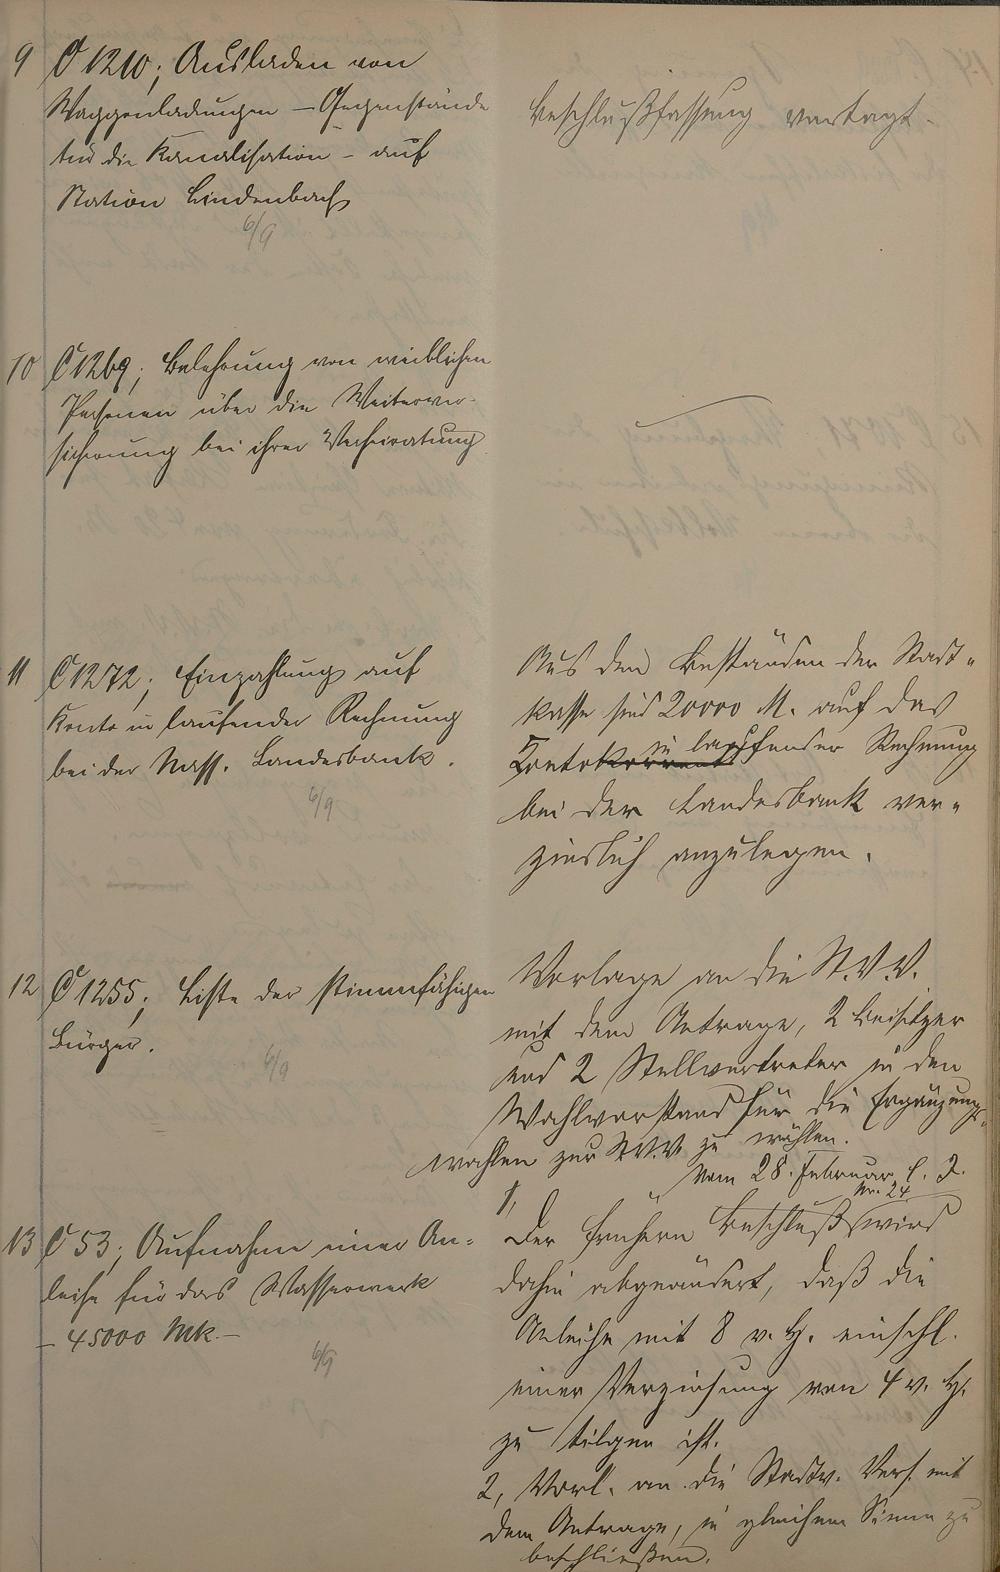 9 C 1210; Ausladen von
Waggonladungen – Gegenstände
für die Kanalisation – auf
Station Lindenbach
6/9
Beschlußfassung vertagt.
10 C 1269; Belehrung von weiblichen
Personen über die Weiterver-
sicherung bei ihrer Verheiratung
11 C 1272; Einzahlung auf
Konto in laufender Rechnung
bei der Nass. Landesbank.
6/9
Aus den Beständen der Stadt-
kasse sind 20000 M. auf das
Konto in laufender Rechnung
bei der Landesbank ver-
zinslich anzulegen.
12 C 1255; Liste der stimmfähigen
Bürger.
6/9
Vorlage an die St.V.V.
mit dem Antrage, 2 Beisitzer
und 2 Stellvertreter in den
Wahlvorstand für die Ergänzungs-
wahlen zur St.V.V. zu wählen.
13 C 53; Aufnahme einer An-
leihe für das Wasserwerk
– 45000 Mk. –
6/9
vom 28. Februar l. J.
Nr. 24
1, Der frühere Beschluß wird
dahin abgeändert, daß die
Anleihe mit 8 v. H. einschl.
einer Verzinsung von 4 v. H.
zu tilgen ist.
2, Vorl. an die Stadtv. Vers. mit
dem Antrage, in gleichem Sinne zu
beschließen.